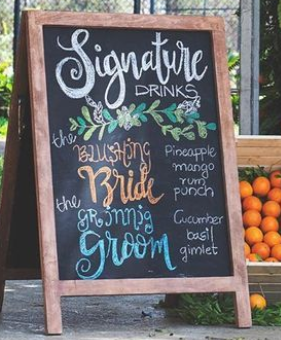 Signature
DRINKS
the BLUSHING
Bride
Pineapple
mango
rum
punch
the GRINNIG
Groom
Cucumber
basil
gimlet